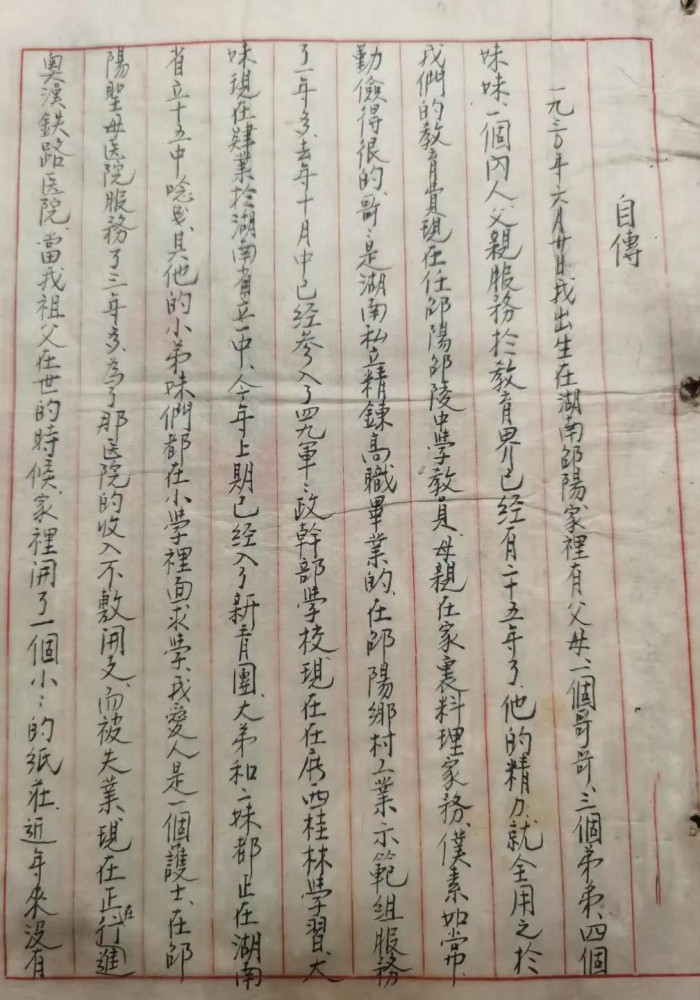 自傳
一九三〇年六月廿日我出生在湖南邵陽家裡有父母、一個哥哥、三個弟弟、四個
妹妹、一個內人、父親服務於教育界已經有二十五年了、他的精力就全用之於
我們的教育費現在任邵陽邵陵中學教員、母親在家裏料理家務、僕素如常、
勤儉得很的、哥：是湖南私立精鍊高職畢業的、在邵陽鄉村工業示範組服務
了一年多、去年十月中已经參入了四九軍：政幹部學校現在在廣西桂林學習、大
妹現在肄業於湖南省立一中、今年上期已经入了新青團、大弟和二妹都正在湖南
省立十五中唸書、其他的小弟妹們都在小学裡面求学、我愛人是一個護士、在邵
陽聖母医院服務了三年多、為了那医院的收入不敷開支、而被失業、現在正在行進
奧漢鉄路医院、當我祖父在世的時候、家裡開了一個小：的紙莊、近年來没有